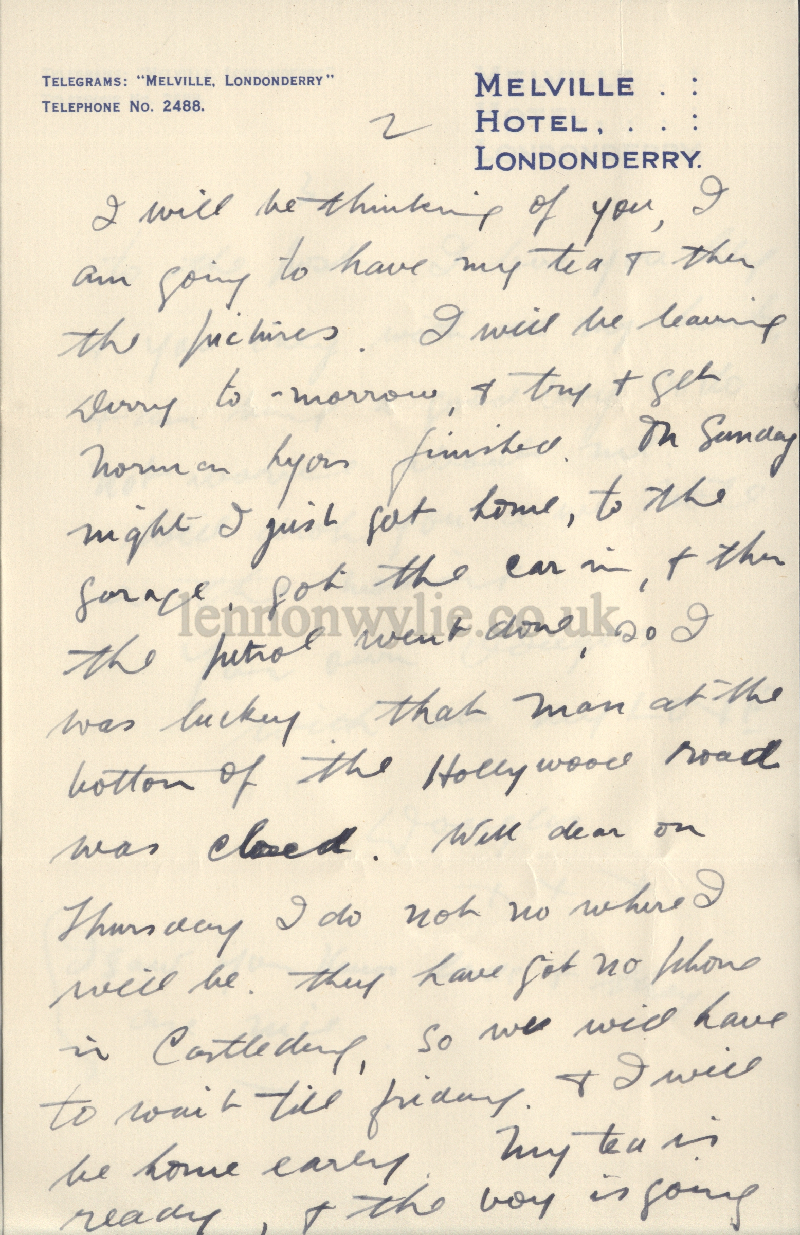 TELEGRAMS: "MELVILLE, LONDONDERRY"
TELEPHONE NO. 2488.
MELVILLE . :
HOTEL, . . :
LONDONDERRY.
2
I will be thinking of you, I
am going to have my tea & then
the pictures. I will be leaving
Derry to-morrow, & try & get
Norman Lyons finished. On Sunday
night I just got home, to the
garage, got the car in, & then
the petrol went done, so I
lennonwylie.co.uk
was luckey that man at the
bottom of the Hollywood road
was closed. Well dear on
Thursday I do not no where I
will be. they have got no phone
in Castlederg, so we will have
to wait till friday. & I will
be home early. My tea is
ready, & the boy is going